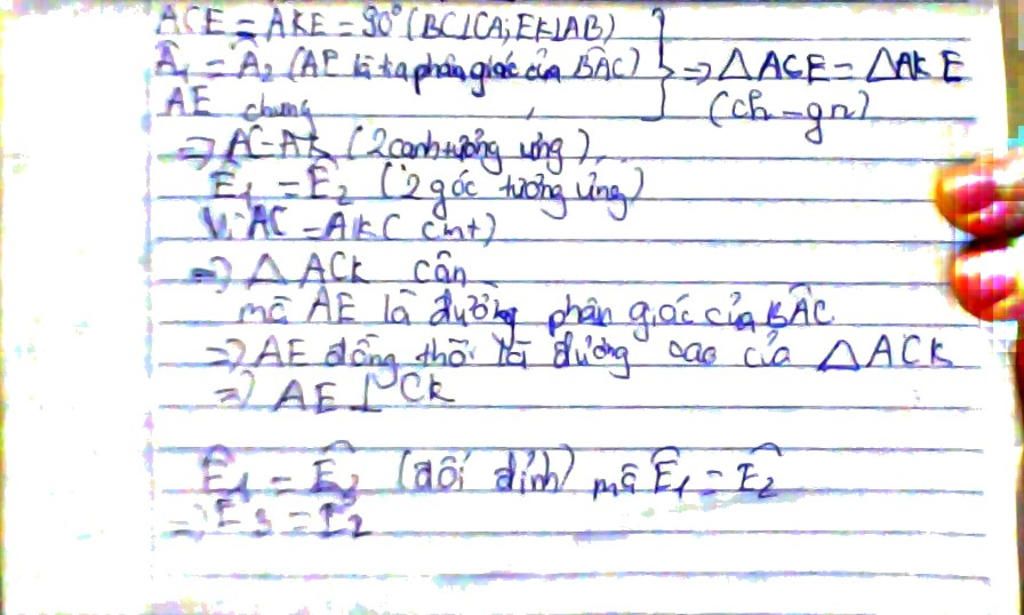 ACE = AKE = 90° (BC⊥CA; EK⊥AB)
Â₁ = Â₂ (AE là tia phân giác của BÂC) } ⇒ △ACE = △AKE
AE chung (ch - gn)
⇒ AC = AK (2 cạnh tương ứng),
Ê₁ = Ê₂ (2 góc tương ứng)
Vì AC = AK (cmt)
⇒ △ ACK cân
mà AE là đường phân giác của BÂC
⇒ AE đồng thời là đường cao của △ACK
⇒ AE ⊥ CK
Ê₁ = Ê₃ (đối đỉnh) mà Ê₁ = Ê₂
⇒ E₃ = E₂